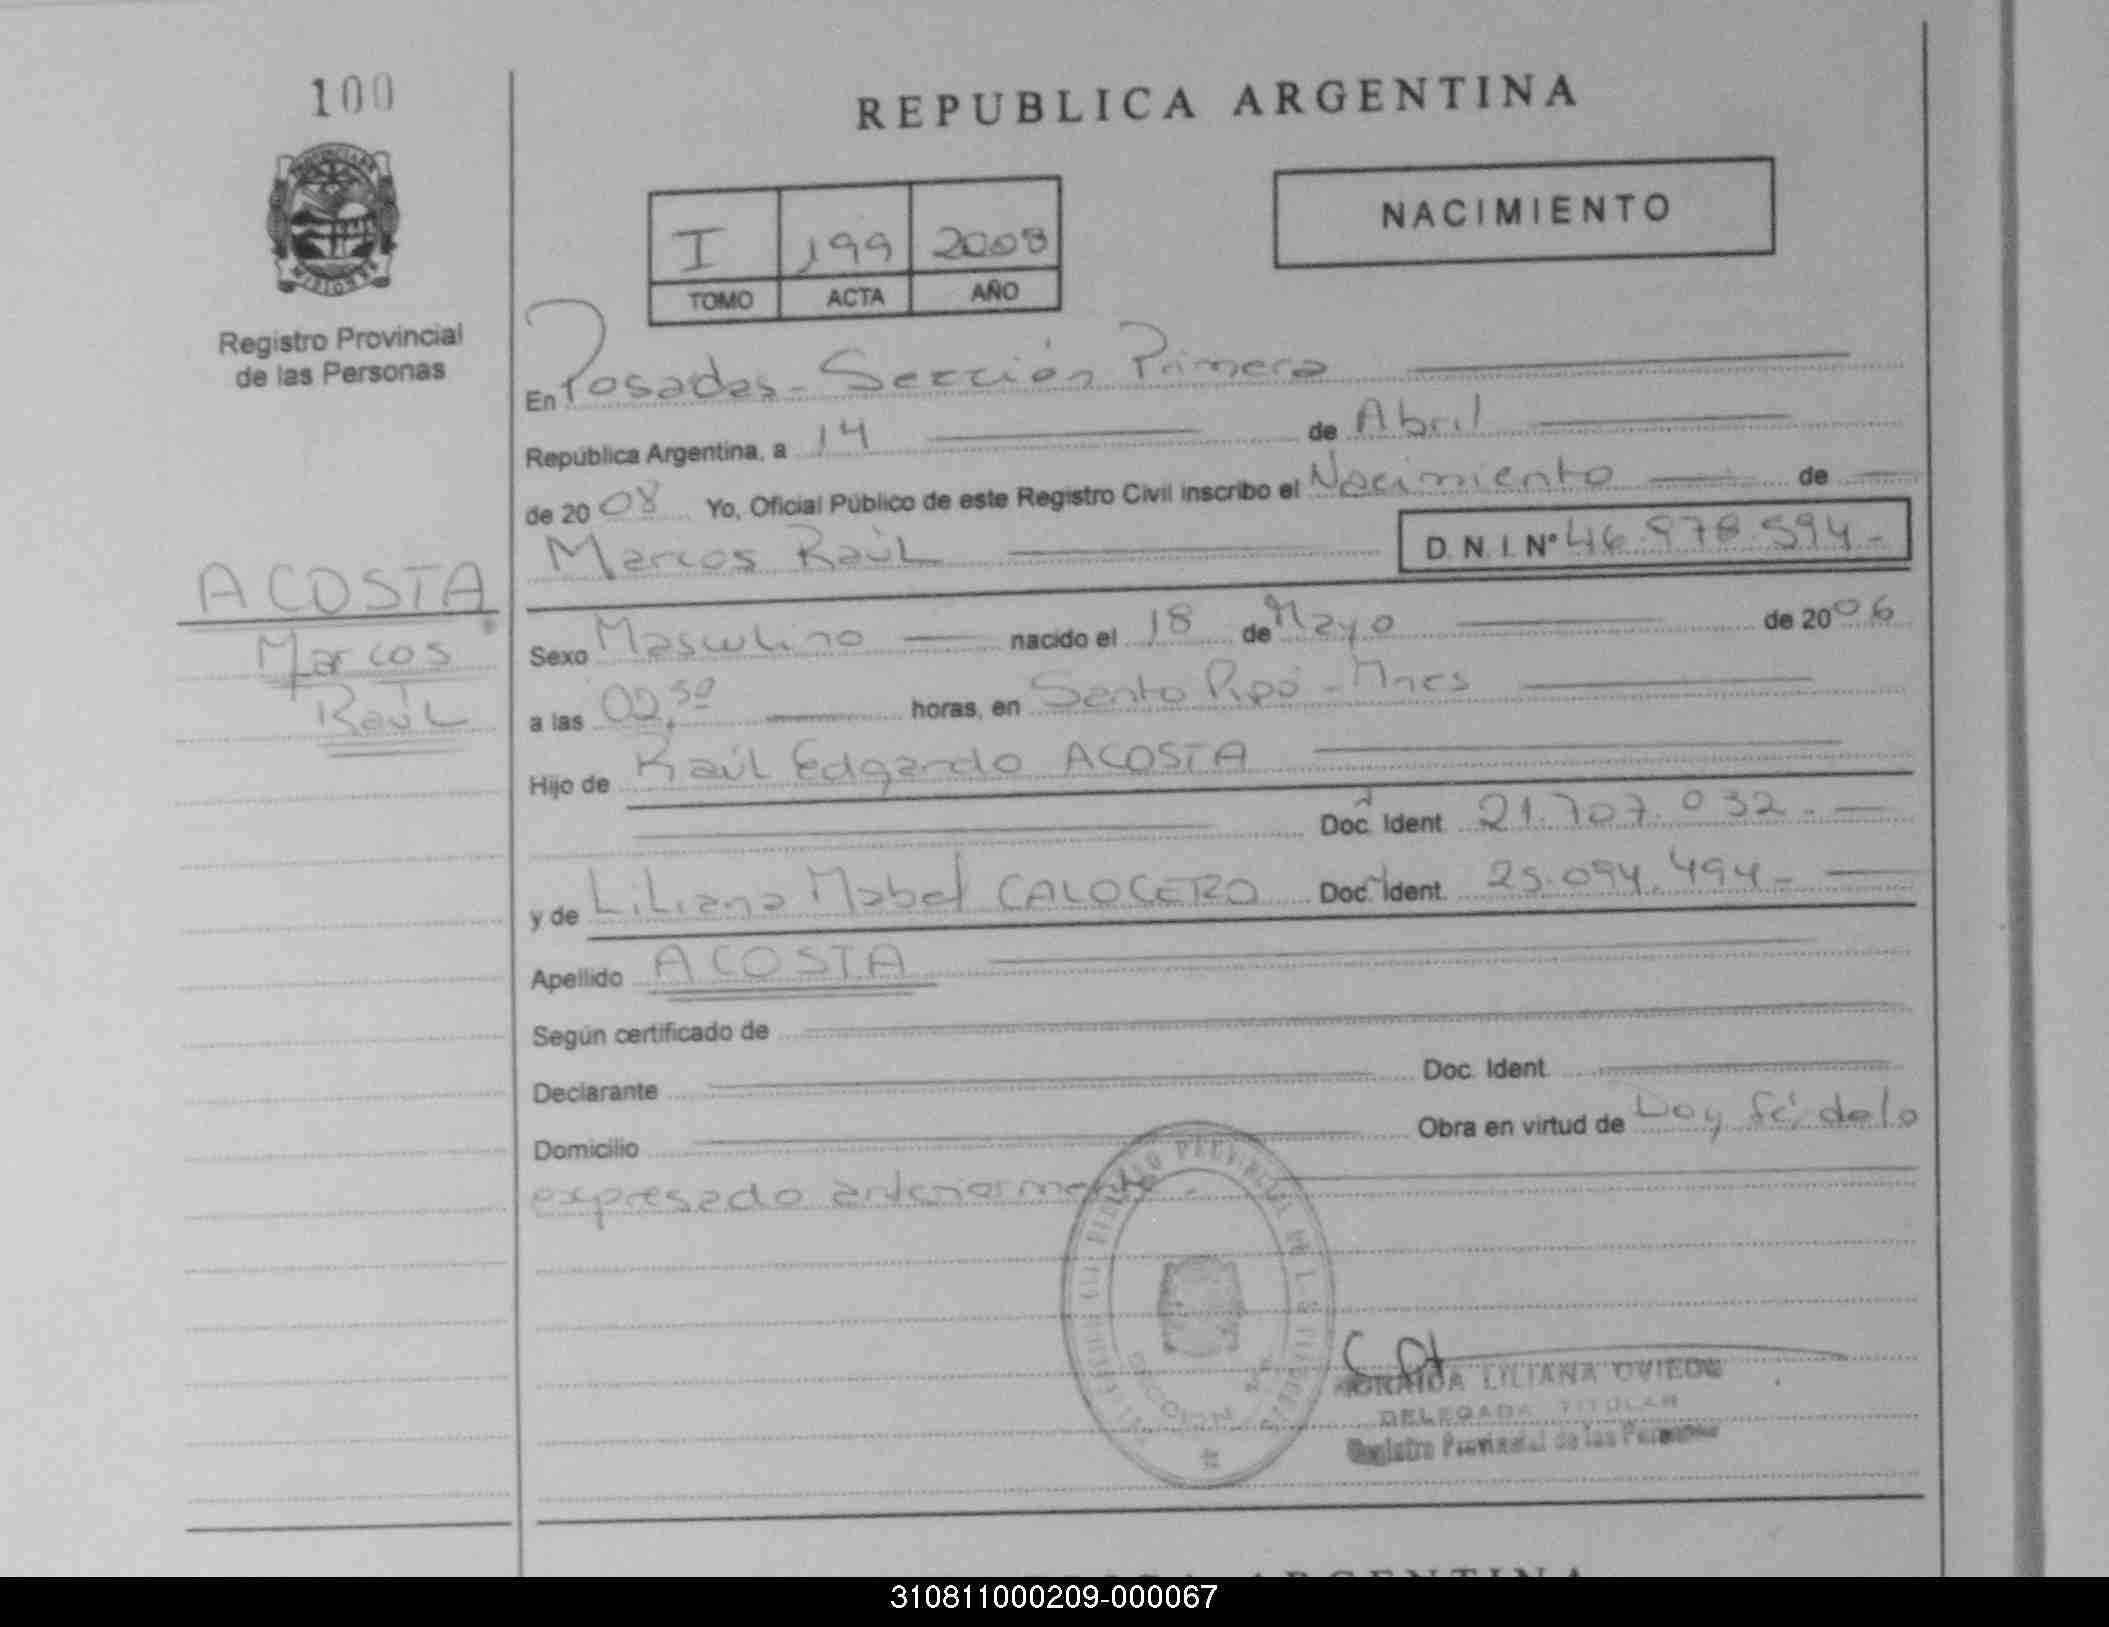 100
REPUBLICA ARGENTINA
NACIMIENTO
I 199 2008
TOMO ACTA AÑO
Registro Provincial
de las Personas
En Posadas - Sección Primera
República Argentina, a 14 de Abril
de 2008 Yo, Oficial Público de este Registro Civil inscribo el Nacimiento de
Marcos Raúl D.N.I. Nº 46.978.594.-
ACOSTA
Marcos
Raúl
Sexo Masculino nacido el 18 de Mayo de 2006
a las 02,50 horas, en Santo Pipó - Mnes
Hijo de Raúl Edgardo ACOSTA
Doc. Ident. 21.707.032.-
y de Liliana Mabel CALOCERO Doc. Ident. 25.094.494-
Apellido ACOSTA
Según certificado de
Declarante Doc. Ident.
Domicilio Obra en virtud de Doy fé, de lo
expresado anteriormente.
LILIANA OVIEDO
DELEGADA TITULAR
Registro Provincial de las Personas
310811000209-000067